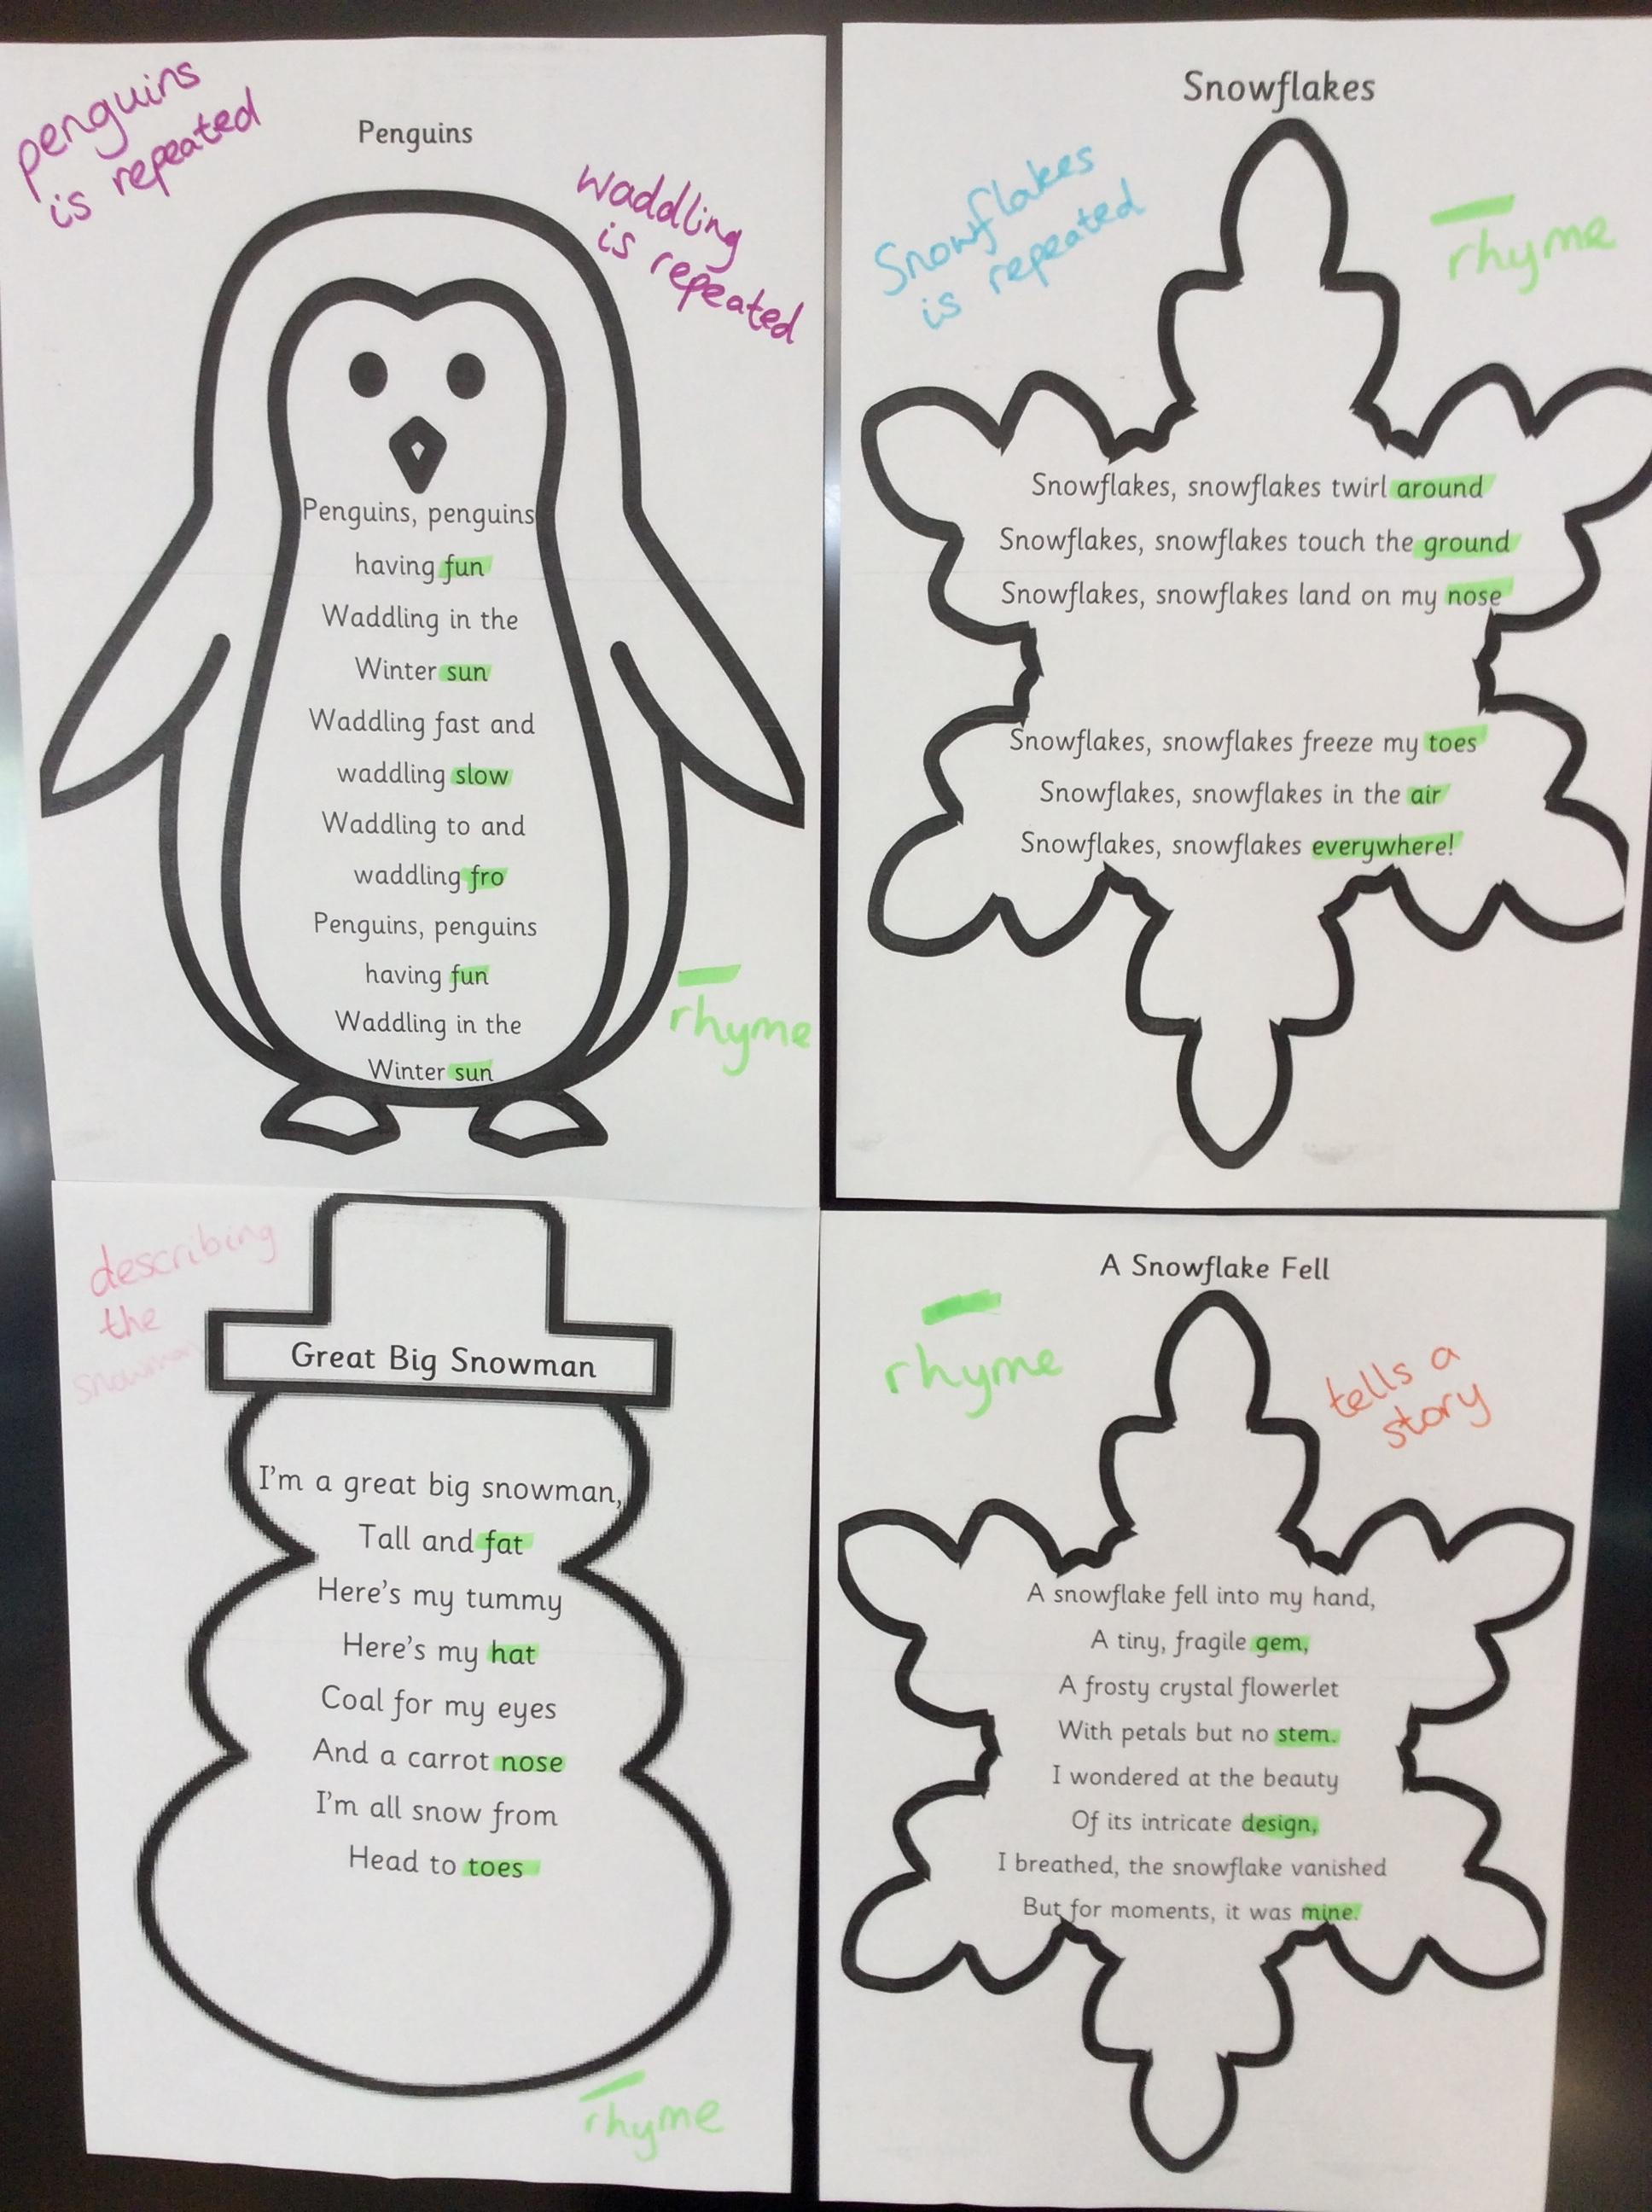 penguins
is repeated
Penguins
waddling
is repeated
Penguins, penguins
having fun
Waddling in the
Winter sun
Waddling fast and
waddling slow
Waddling to and
waddling fro
Penguins, penguins
having fun
Waddling in the
Winter sun
rhyme
Snowflakes
Snowflakes
is repeated
rhyme
Snowflakes, snowflakes twirl around
Snowflakes, snowflakes touch the ground
Snowflakes, snowflakes land on my nose
Snowflakes, snowflakes freeze my toes
Snowflakes, snowflakes in the air
Snowflakes, snowflakes everywhere!
describing
the
snowman
Great Big Snowman
I'm a great big snowman,
Tall and fat
Here's my tummy
Here's my hat
Coal for my eyes
And a carrot nose
I'm all snow from
Head to toes
rhyme
A Snowflake Fell
rhyme
tells a
story
A snowflake fell into my hand,
A tiny, fragile gem,
A frosty crystal flowerlet
With petals but no stem.
I wondered at the beauty
Of its intricate design,
I breathed, the snowflake vanished
But for moments, it was mine.